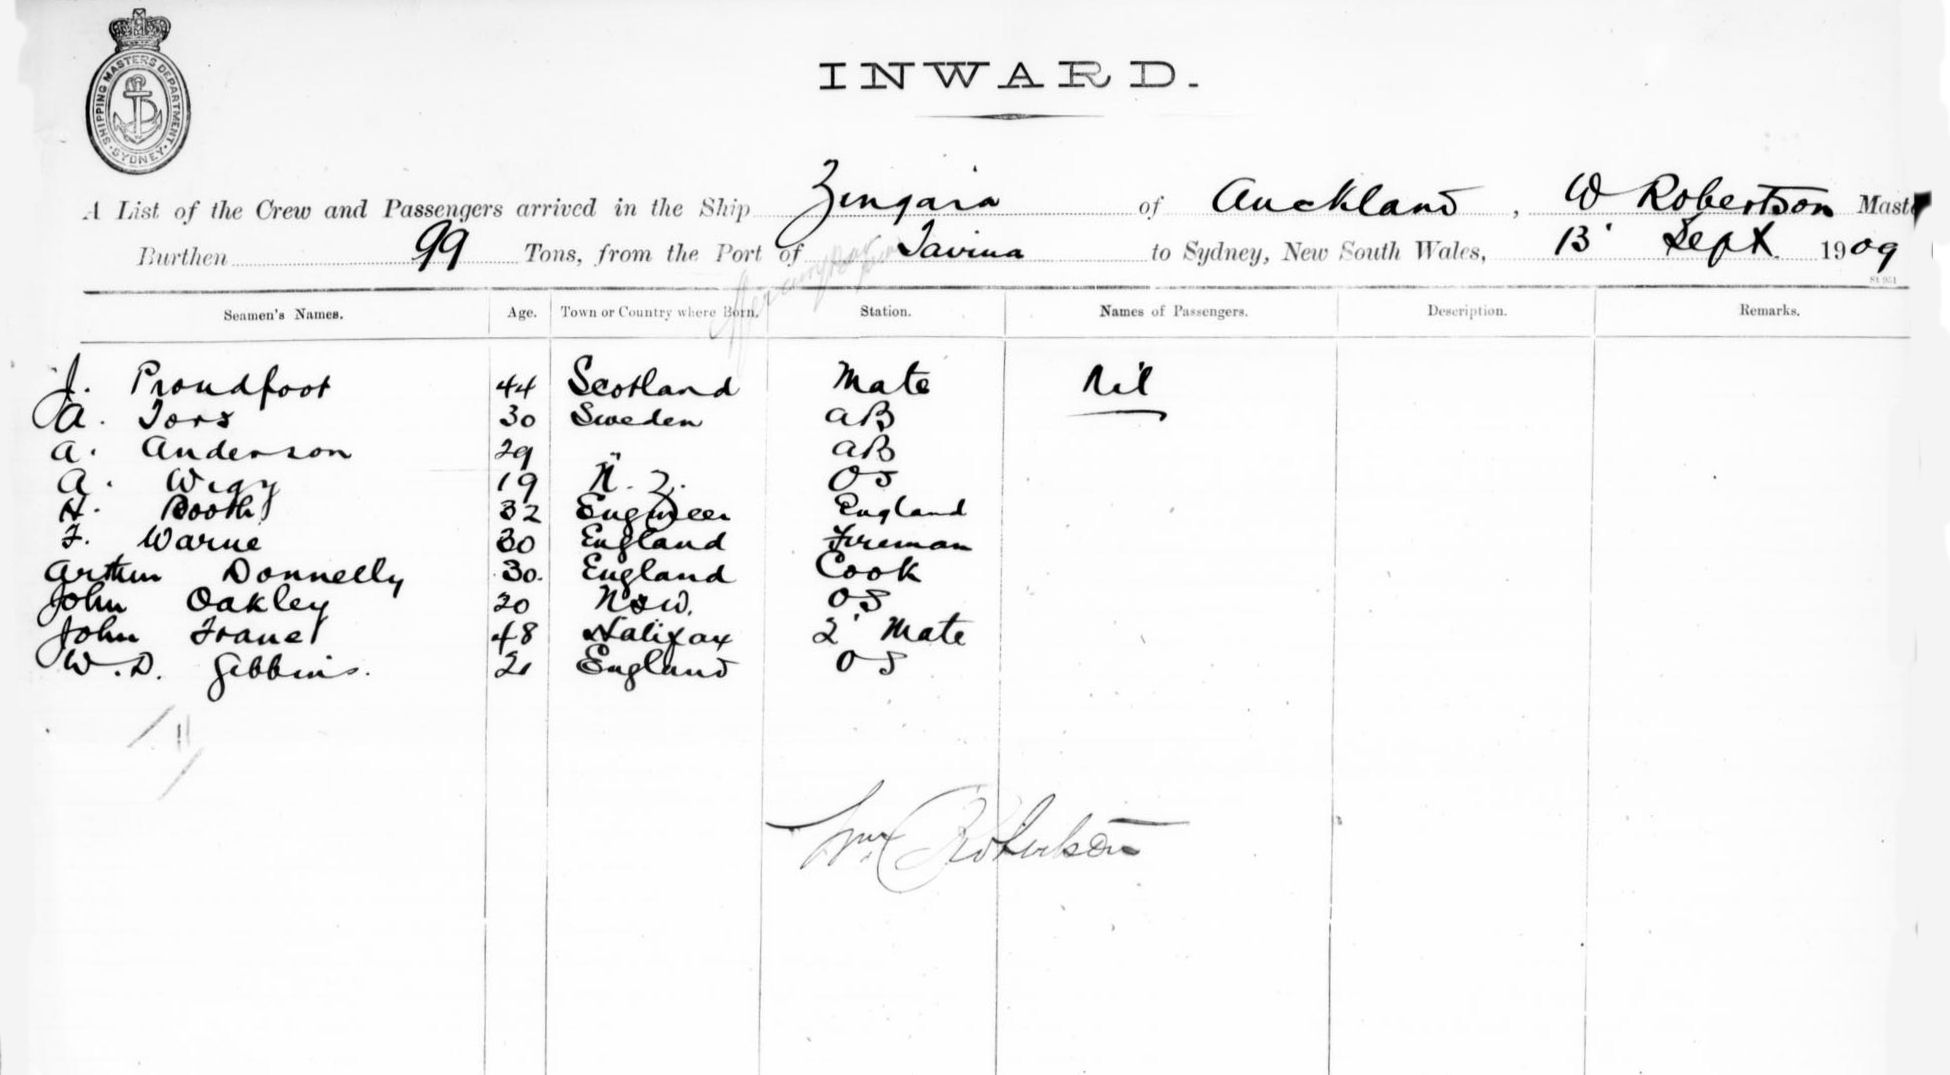 SHIPPING MASTERS DEPARTMENT. SYDNEY.
INWARD.
A List of the Crew and Passengers arrived in the Ship Zingara of Auckland, W Robertson Maste
Burthen 99 Tons, from the Port of Taviuna to Sydney, New South Wales, 13' Sept. 1909
Seamen's Names. Age. Town or Country where Born. Station. Names of Passengers. Description. Remarks.
J. Proudfoot 44 Scotland Mate Nil
A. Tors 30 Sweden AB
A. Anderson 29 " AB
A. 19 N.Z. OS
H. Booth 32 Engineer England
F. Warne 30 England Fireman
Arthur Donnelly 30. England Cook
John Oakley 20 NSW. OS
John 48 Halifax 2' Mate
W.D. Gibbins. 21 England OS
11
Wm Robertson